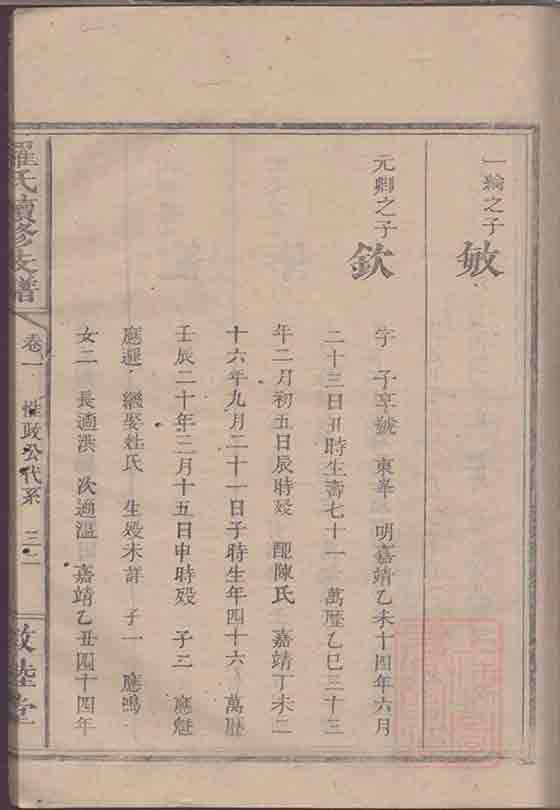 一綸之子
敏
元卿之子
欽
字 子亨號 東峯 明嘉靖乙未十四年六月
二十三日丑時生壽七十一 萬歷乙巳三十三
年二月初五日辰時殁 配陳氏 嘉靖丁未二
十六年九月二十一日子時生年四十六 萬歷
壬辰二十年三月十五日申時殁 子二 應魁
應暹 繼娶姓氏 生殁未詳 子一 應鴻
女二 長適洪 次適溫 嘉靖乙丑四十四年
羅氏續修支譜
卷一 惟政公代系 三二
敦睦堂